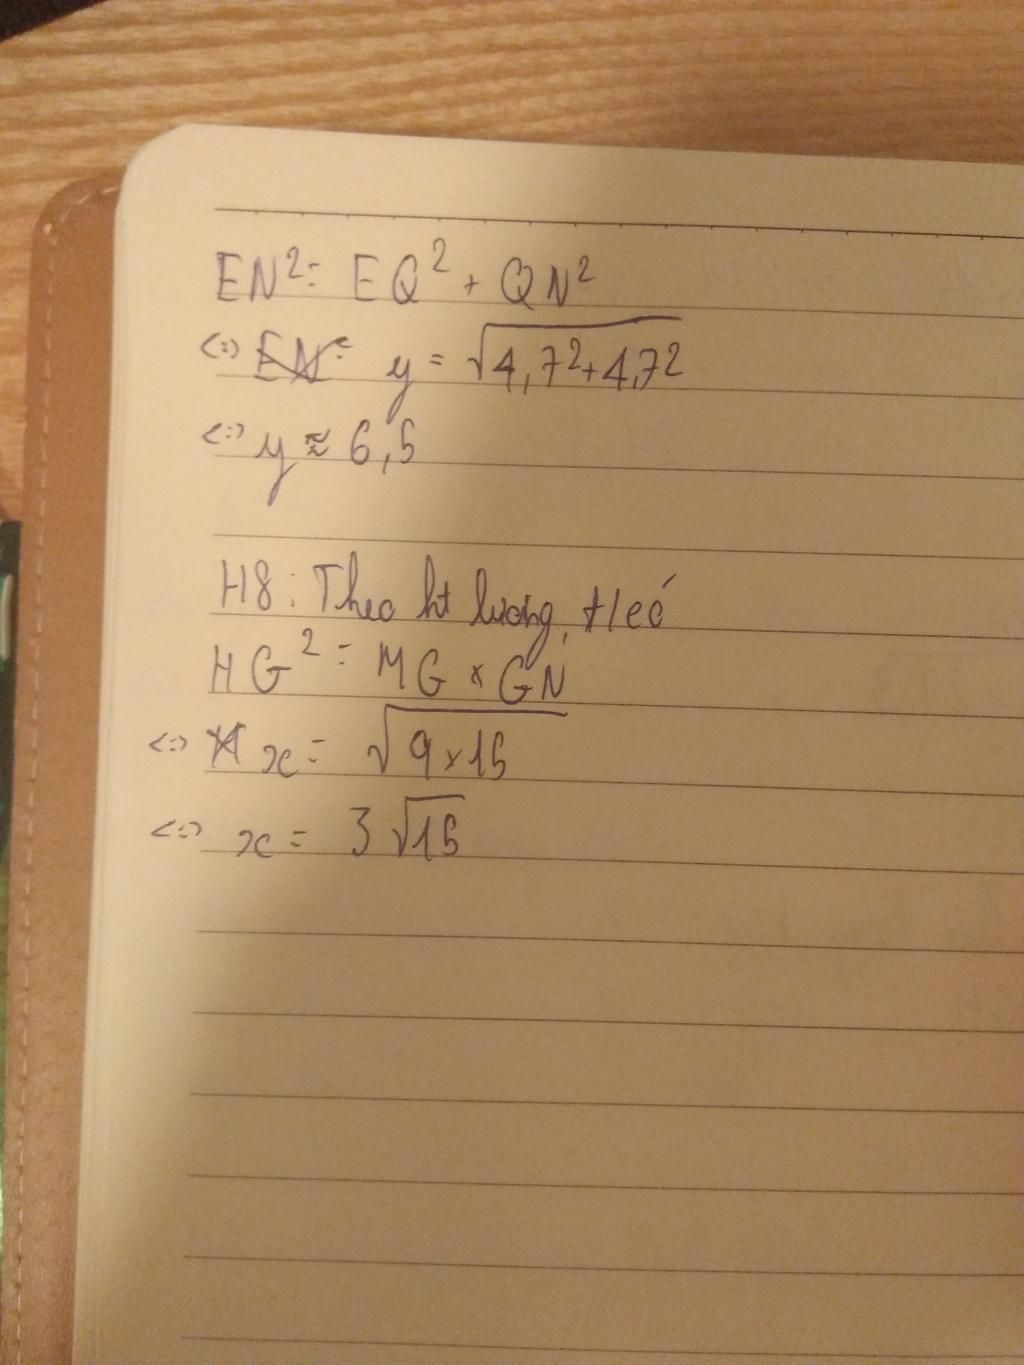 EN² = EQ² + QN²
<=> y = √4,7² + 4,7²
<=> y ≈ 6,5
H8 : Theo ht lượng, ta có
HG² = MG × GN
<=> x = √9 × 15
<=> x = 3√15